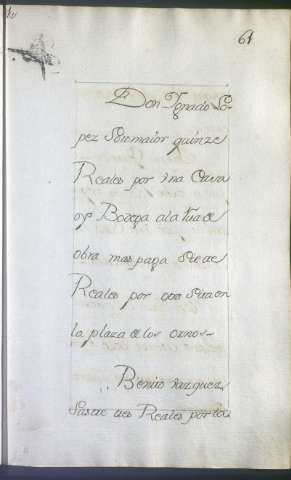 61
Don Ygnacio Lo-
pez Sotomaior quinze
Reales por vna Cassa
y Bodega a la rua de
obra mas paga Siete
Reales por otra Sita en
la plaza de los ornos-
Benito Vazquez
Sastre tres Reales por la